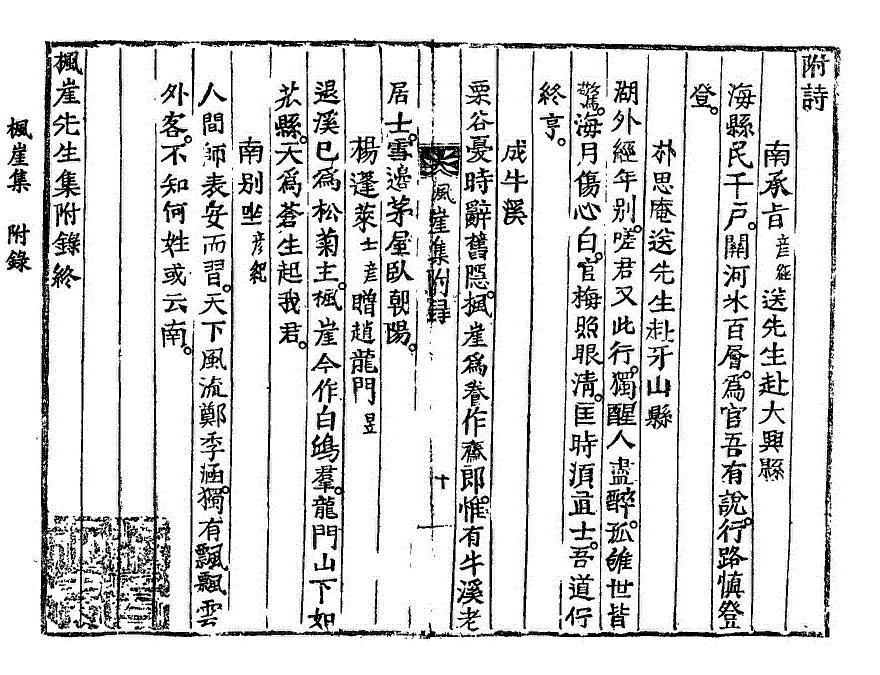 附詩
南承旨彦經送先生赴大興縣
海縣民千戶。關河氷百層。爲官吾有說。行路愼登
登。
朴思庵送先生赴牙山縣
湖外經年別。嗟君又此行。獨醒人盡醉。孤雊世皆
驚。海月傷心白。官梅照眼淸。匡時須直士。吾道佇
終亨。
成牛溪
栗谷憂時辭舊隱。楓崖爲養作齋郎。惟有牛溪老
居士。雪邊茅屋臥朝陽。
楊蓬萊士彦贈趙龍門昱
退溪已爲松菊主。楓崖今作白鴎羣。龍門山下如
茶縣。天爲蒼生起我君。
南別坐彦紀
人間師表安而習。天下風流鄭季涵。獨有飄飄雲
外客。不知何姓或云南。
楓崖先生集附錄終
楓崖集附録
十
楓崖集 附錄